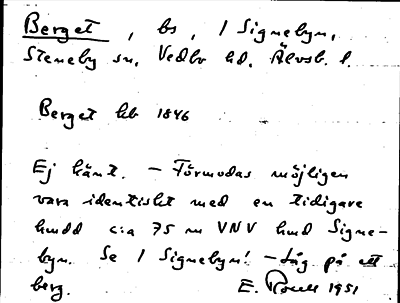 Berget, bs, 1 Signebyn,
Steneby sn, Vedbo hd, Älvsb. l.
Berget hb 1846
Ej känt. – Förmodas möjligen
vara identiskt med en tidigare
hmdd c:a 75 m VNV hmd Signe-
byn. Se 1 Signebyn! – Låg på ett
berg. E. 1951